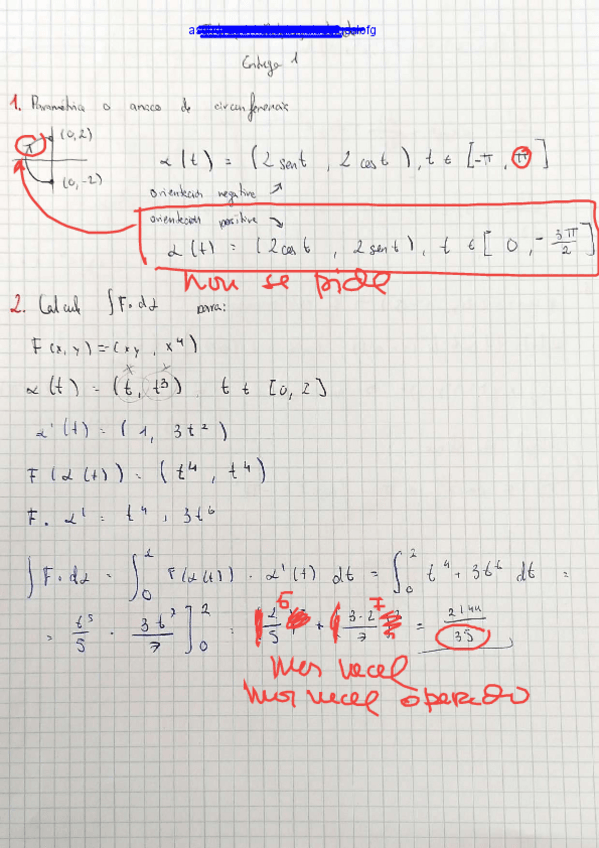 Entrega 1
1. Parametriza o anaco de circunferencia
(0,2)
π
(0,-2)
α(t) = (2 sent, 2 cost), t ∈ [-π, π]
orientacion negativa
orientacion positiva
α(t) = (2cost, 2sent), t ∈ [0, -3π/2]
Non se pide
2. Calcul ∫F·dα para:
F(x,y) = (xy, x⁴)
x x
α(t) = (t, t³) t ∈ [0, 2]
α'(t) = (1, 3t²)
F(α(t)) = (t⁴, t⁴)
F. α' = t⁴, 3t⁶
∫F·dα = ∫₀² F(α(t)) · α'(t) dt = ∫₀² t⁴ + 3t⁶ dt =
= t⁵/5 · 3t⁷/7 ]₀² = 2⁵/5 + 3·2⁷/7 = 2144/35
Mal operado